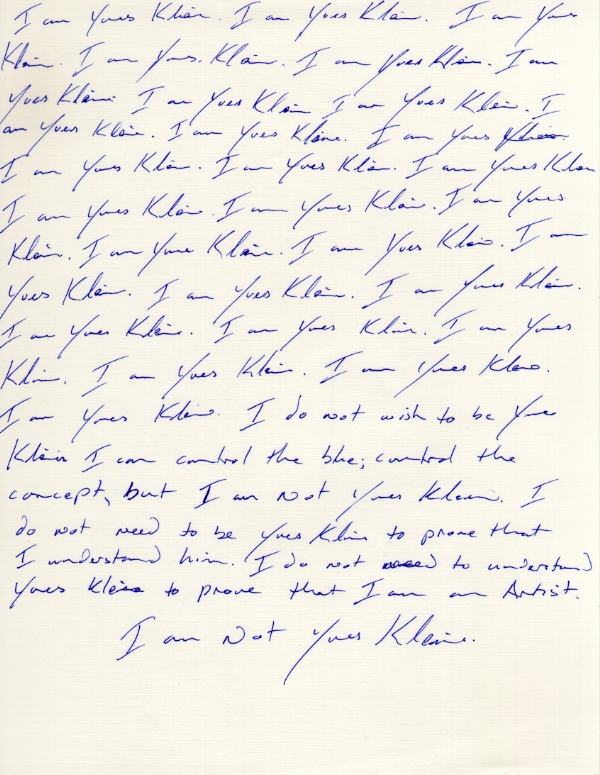 I am Yves Klein. I am Yves Klein. I am Yves
Klein. I am Yves. Klein. I am Yves Klein. I am
Yves Klein. I am Yves Klein I am Yves Klein. I
am Yves Klein. I am Yves Kleine. I am Yves Klein.
I am Yves Klein. I am Yves Klein. I am Yves Klein
I am Yves Klein. I am Yves Klein. I am Yves
Klein. I am Yves Klein. I am Yves Klein. I am
Yves Klein. I am Yves Klein. I am Yves Klein.
I am Yves Klein. I am Yves Klein. I am Yves
Klein. I am Yves Klein. I am Yves Klein.
I am Yves Klein. I do not wish to be Yves
Klein I can control the blue; control the
concept, but I am not Yves Klein. I
do not need to be Yves Klein to prove that
I understand him. I do not need to understand
Yves Klein to prove that I am an Artist.
I am Not Yves Klein.